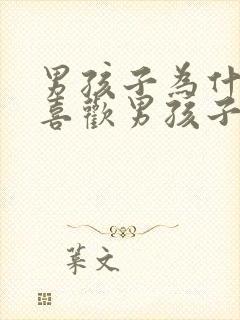 男孩子為什
喜歡男孩子
葉文